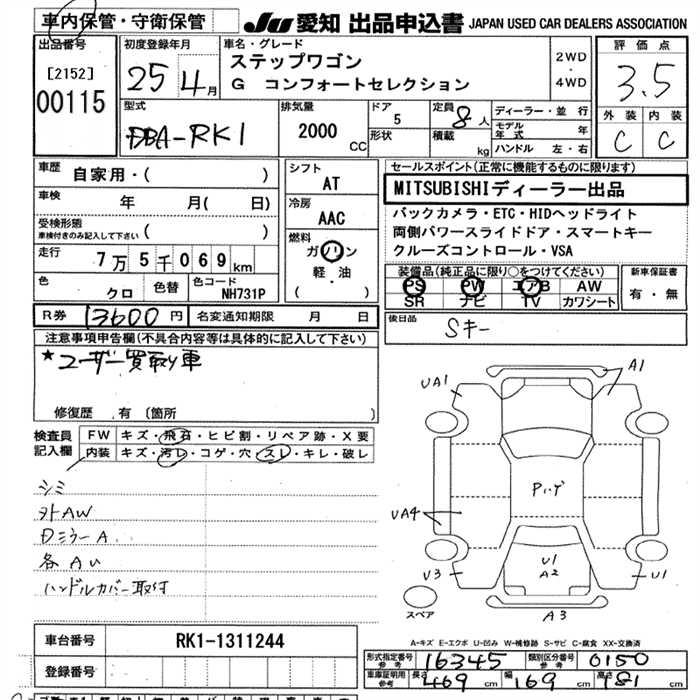 車内保管・守衛保管
JU 愛知 出品申込書 JAPAN USED CAR DEALERS ASSOCIATION
出品番号
[2152]
00115
初度登録年月
25 4月
車名・グレード
ステップワゴン
G コンフォートセレクション
2WD
・
4WD
評価点
3.5
外装 内装
C C
型式
DBA-RK1
排気量
2000 CC
ドア
5
形状
定員 8人
積載 kg
ディーラー・並行
モデル年式 年
ハンドル 左・右
車歴 自家用・( )
車検 年 月( 日)
受検形態
車検付きのみ記入して下さい ( )
走行 7万5千069km
色 クロ 色替 色コード NH731P
シフト
AT
冷房
AAC
燃料
ガソリン
軽・油
( )
セールスポイント(正常に機能するものに限ります)
MITSUBISHIディーラー出品
バックカメラ・ETC・HIDヘッドライト
両側パワースライドドア・スマートキー
クルーズコントロール・VSA
装備品(純正品に限り○をつけてください)
PS PW エアB AW
SR ナビ TV カワシート
新車保証書
有・無
R券 13600円 名変通知期限 月 日
後日品 Sキー
注意事項申告欄(不具合内容等は具体的に記入して下さい)
★ユーザー買取り車
修復歴 有〔箇所 〕
検査員記入欄
FW キズ・飛石・ヒビ割・リペア跡・X要
内装 キズ・汚レ・コゲ・穴・スレ・キレ・破レ
シミ
外AW
Dミラー A
各AU
ハンドルカバー取付
UA1
A1
Pハゲ
UA4
U1
A2
U3
U1
スペア
A3
A-キズ E-エクボ U-凹み W-補修跡 S-サビ C-腐食 XX-交換済
車台番号 RK1-1311244
登録番号
形式指定番号 参考 16345 類別区分番号 参考 0150
車庫証明用 参考 長さ 469cm 幅 169cm 高さ 181cm